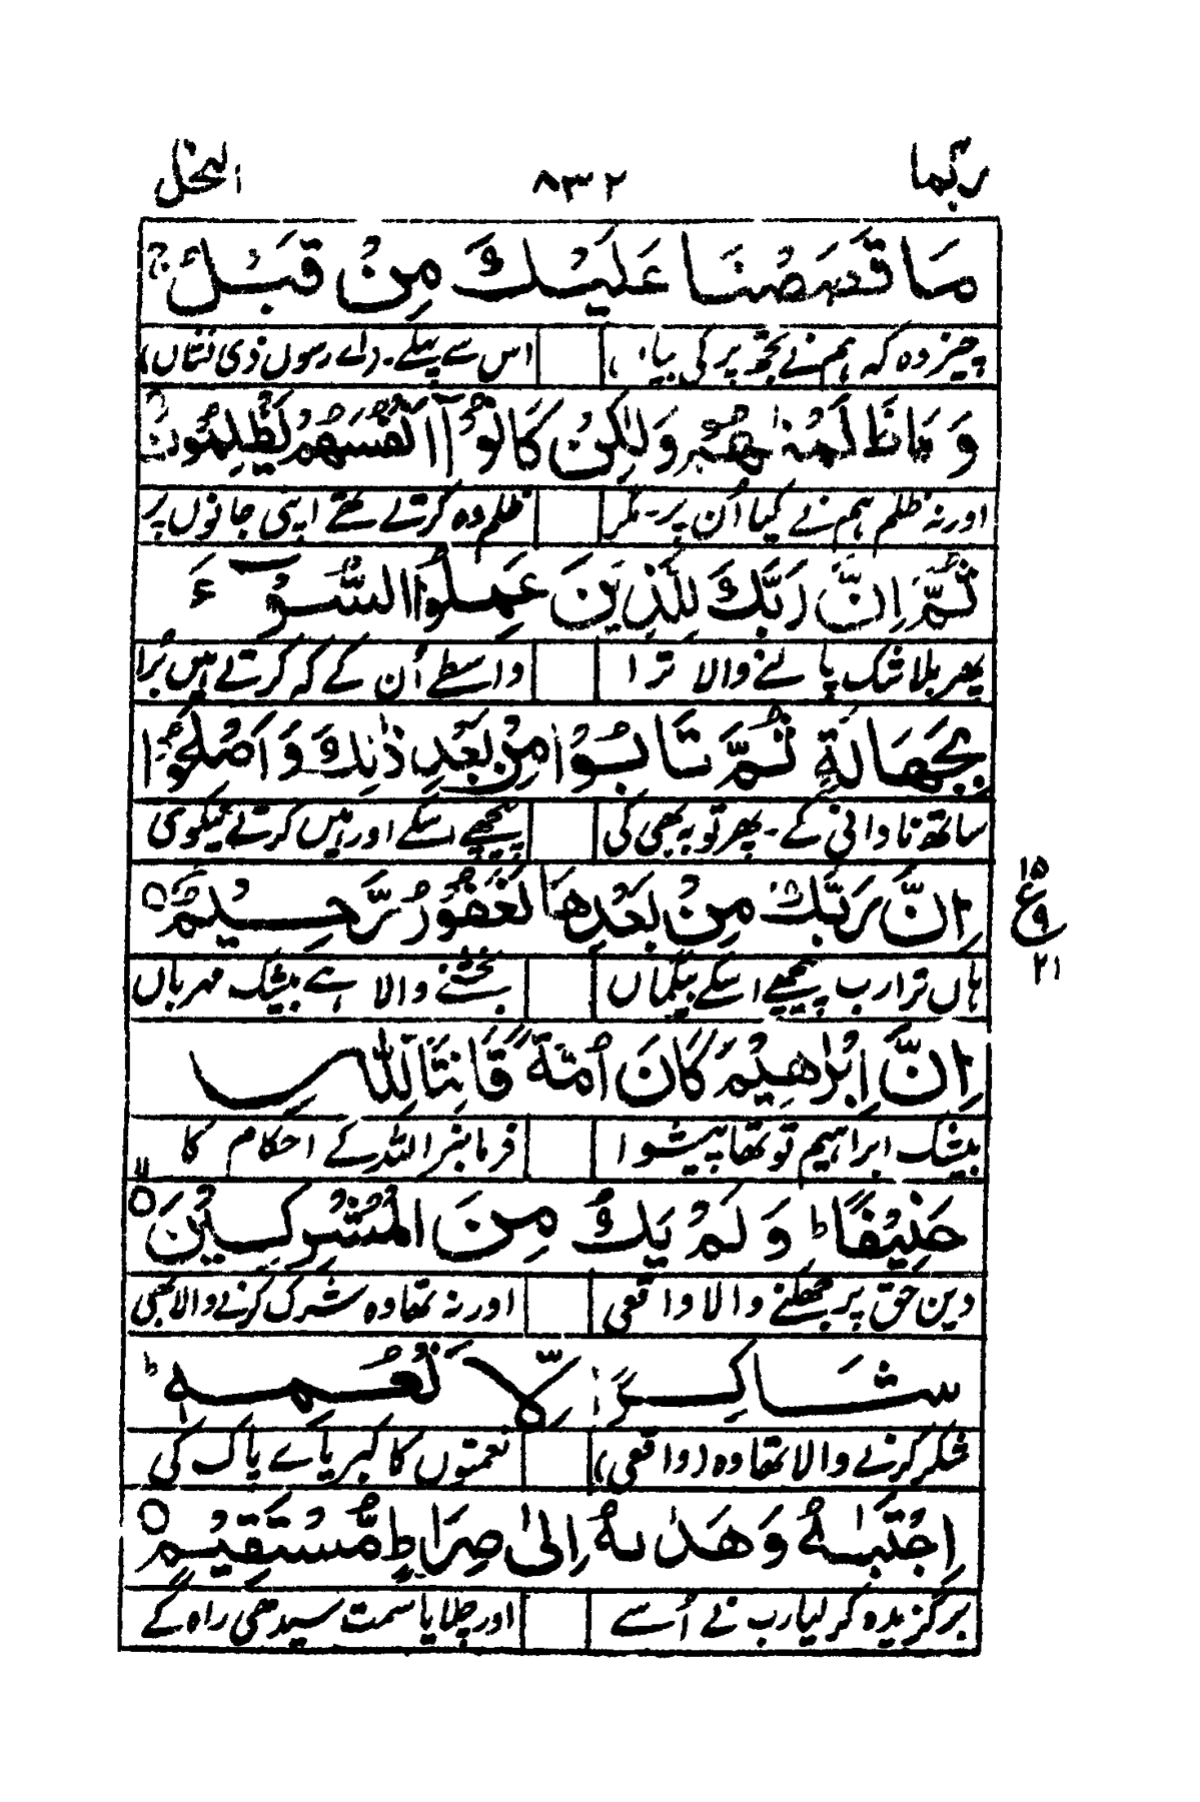 ربما ۸۳۲ النحل
مَا قَصَصْنَا عَلَيْكَ مِنْ قَبْلُ ۚ
چیز وہ کہ ہم نے تجھ پر کی بیاں اس سے پہلے۔ (اے رسول ذی شاں)
وَمَا ظَلَمْنٰهُمْ وَلٰكِنْ كَانُوْٓا اَنْفُسَهُمْ يَظْلِمُوْنَ
اور نہ ظلم ہم نے کیا اُن پر۔ مگر ظلم وہ کرتے تھے اپنی جانوں پر
ثُمَّ اِنَّ رَبَّكَ لِلَّذِيْنَ عَمِلُوا السُّوْٓءَ
پھر بلاشک پالنے والا ترا واسطے اُن کے کہ کرتے ہیں بُرا
بِجَهَالَةٍ ثُمَّ تَابُوْا مِنْۢ بَعْدِ ذٰلِكَ وَاَصْلَحُوْٓا
ساتھ نادانی کے۔ پھر توبہ بھی کی پیچھے اسکے اور ہیں کرتے نیکوی
اِنَّ رَبَّكَ مِنْۢ بَعْدِهَا لَغَفُوْرٌ رَّحِيْمٌ ○
۱۵ ع ۹ ۲۱
ہاں ترا رب پیچھے اسکے بیگماں بخشنے والا ہے بیشک مہرباں
اِنَّ اِبْرٰهِيْمَ كَانَ اُمَّةً قَانِتًا لِّلّٰهِ
بیشک ابراہیم تو تھا پیشوا فرمانبر اللہ کے احکام کا
حَنِيْفًا ؕ وَلَمْ يَكُ مِنَ الْمُشْرِكِيْنَ ○
دین حق پر جھکنے والا واقعی اور نہ تھا وہ شرک کرنے والا بھی
شَاكِرًا لِّاَنْعُمِهٖ ؕ
شکر کرنے والا تھا وہ (واقعی) نعمتوں کا کبریائے پاک کی
اِجْتَبٰىهُ وَهَدٰىهُ اِلٰى صِرَاطٍ مُّسْتَقِيْمٍ ○
برگزیدہ کر لیا رب نے اُسے اور چلایا سمت سیدھی راہ کے